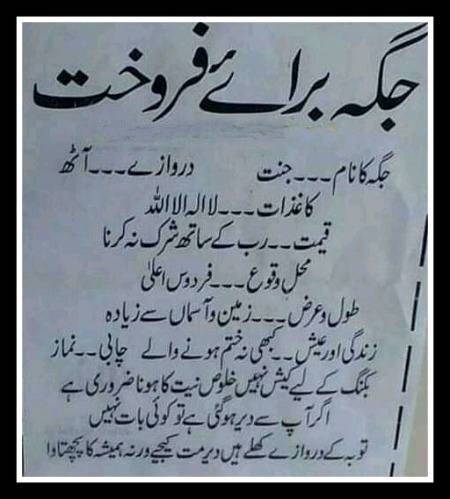 جگہ برائے فروخت
جگہ کا نام ۔۔۔ جنت دروازے ۔۔۔ آٹھ
کاغذات ۔۔۔ لا الہ الا اللہ
قیمت ۔۔ رب کے ساتھ شرک نہ کرنا
محل وقوع ۔۔۔ فردوس اعلیٰ
طول و عرض ۔۔۔ زمین و آسماں سے زیادہ
زندگی اور عیش ۔۔ کبھی نہ ختم ہونے والے چابی ۔۔ نماز
بکنگ کے لیے کیش نہیں خلوص نیت کا ہونا ضروری ہے
اگر آپ سے دیر ہو گئی ہے تو کوئی بات نہیں
توبہ کے دروازے کھلے ہیں دیر مت کیجیے ورنہ ہمیشہ کا پچھتاوا